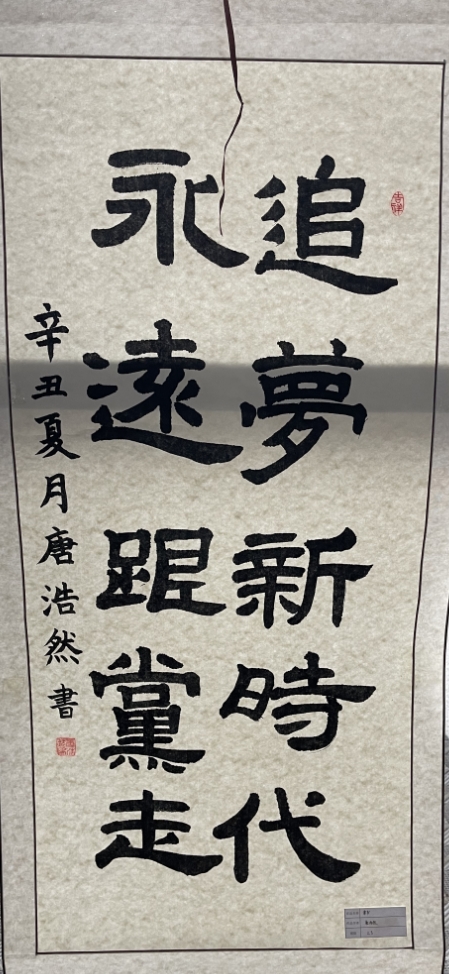 追夢新時代
永遠跟黨走
辛丑夏月唐浩然書
吉祥